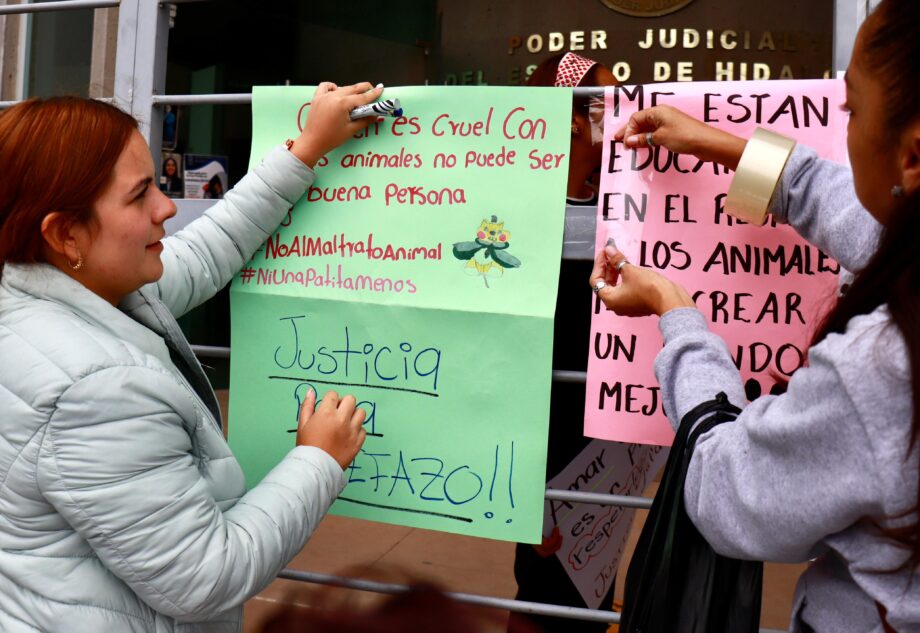 PODER JUDICIAL
DE HIDAL
es cruel Con
animales no puede Ser
buena Persona
#NoAlMaltratoAnimal
#NiUnaPatitamenos
Justicia
EFAZO!!
ME ESTAN
EDUCA
EN EL RE
LOS ANIMALES
CREAR
UN NDO
MEJ
Amar
es
Respe